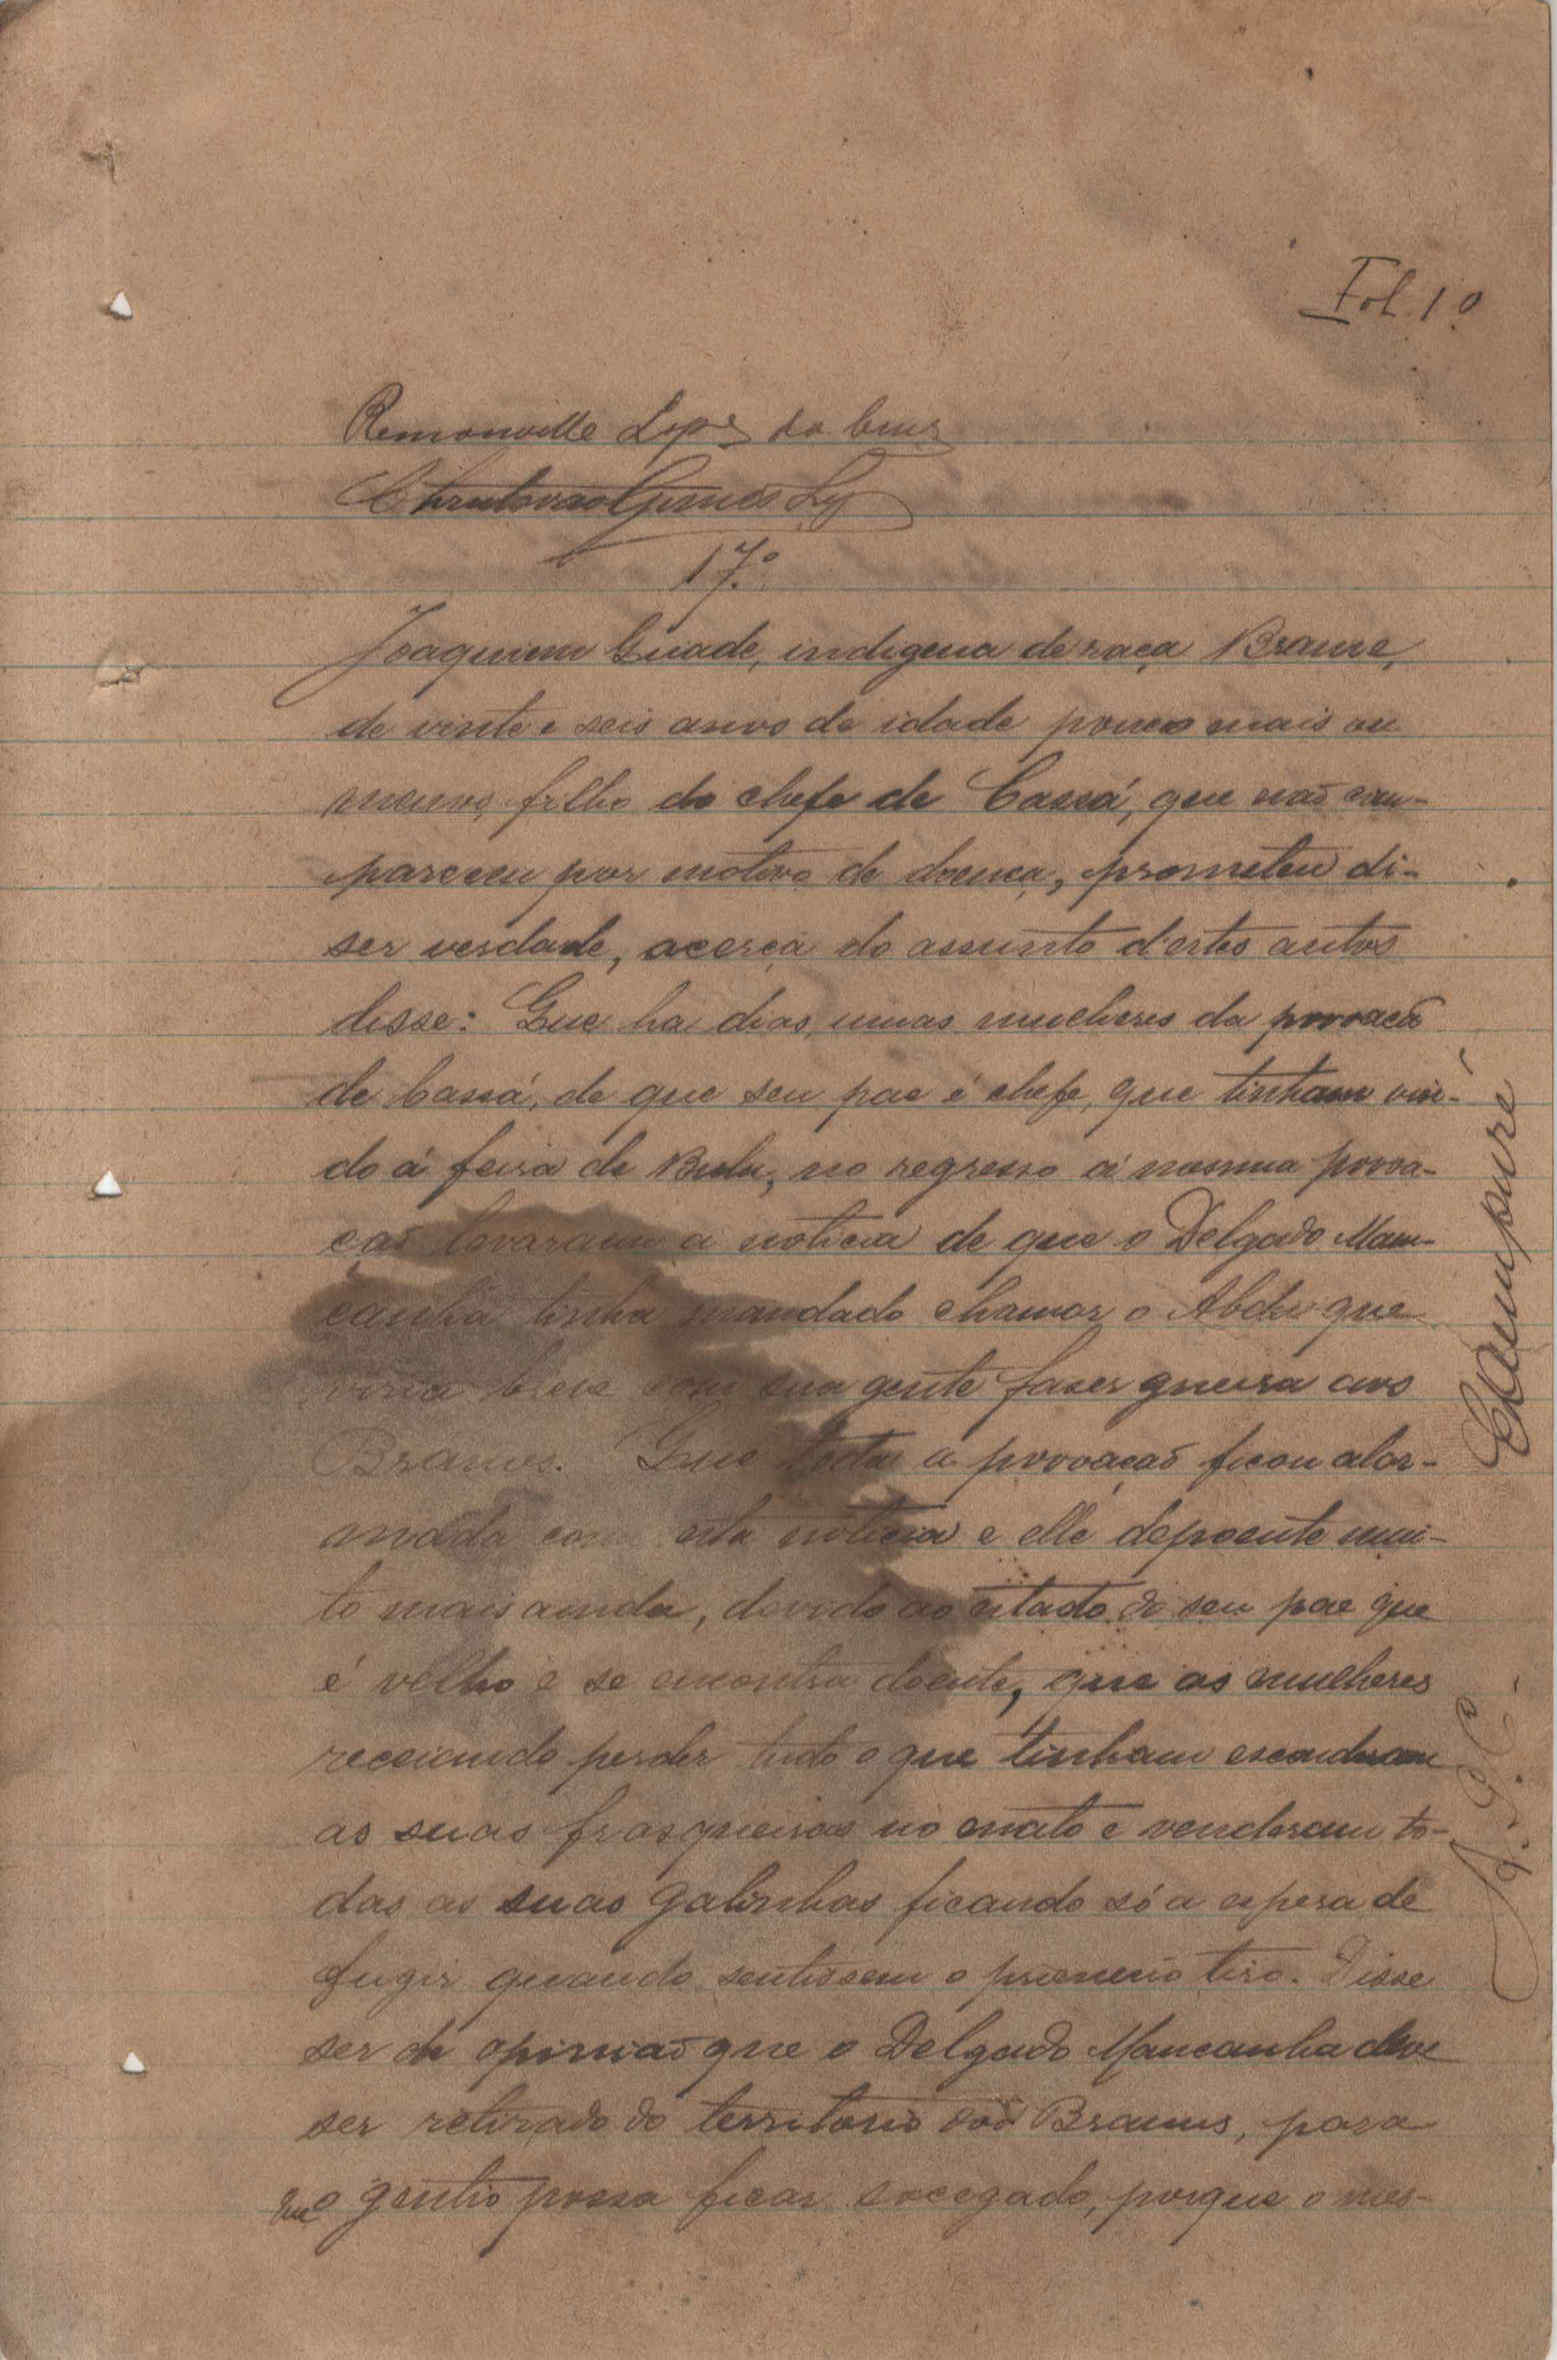 Fol. 1º
Remonville Lopes da Cruz
Christovão Gomes Ly
17.º
Joaquim Guade, indigena de raça Brame,
de vinte e seis annos de idade pouco mais ou
menos, filho do chefe de Cassá, que não com-
pareceu por motivo de doença, prometeu di-
ser verdade, acerca do assunto d'estes autos
disse: Que ha dias, umas mulheres da povoação
de Cassá, de que seu pae é chefe, que tinham vin-
do á feira de Bula, no regresso á mesma povoa-
ção levaram a noticia de que o Delgado Man-
canha tinha mandado chamar o Abdu que
viria breve com sua gente faser guerra aos
Brames. Que toda a povoação ficou alar-
mada com esta noticia e elle depoente mui-
to mais ainda, devido ao estado de seu pae que
é velho e se encontra doente, que as mulheres
receiando perder tudo o que tinham esconderam
as suas frasqueiras no mato e venderam to-
das as suas galinhas ficando só a espera de
fugir quando sentissem o primeiro tiro. Disse
ser de opinião que o Delgado Mancanha deve
ser retirado do territorio dos Brames, para
que o gentio possa ficar socegado, porque o mes-
Campuré